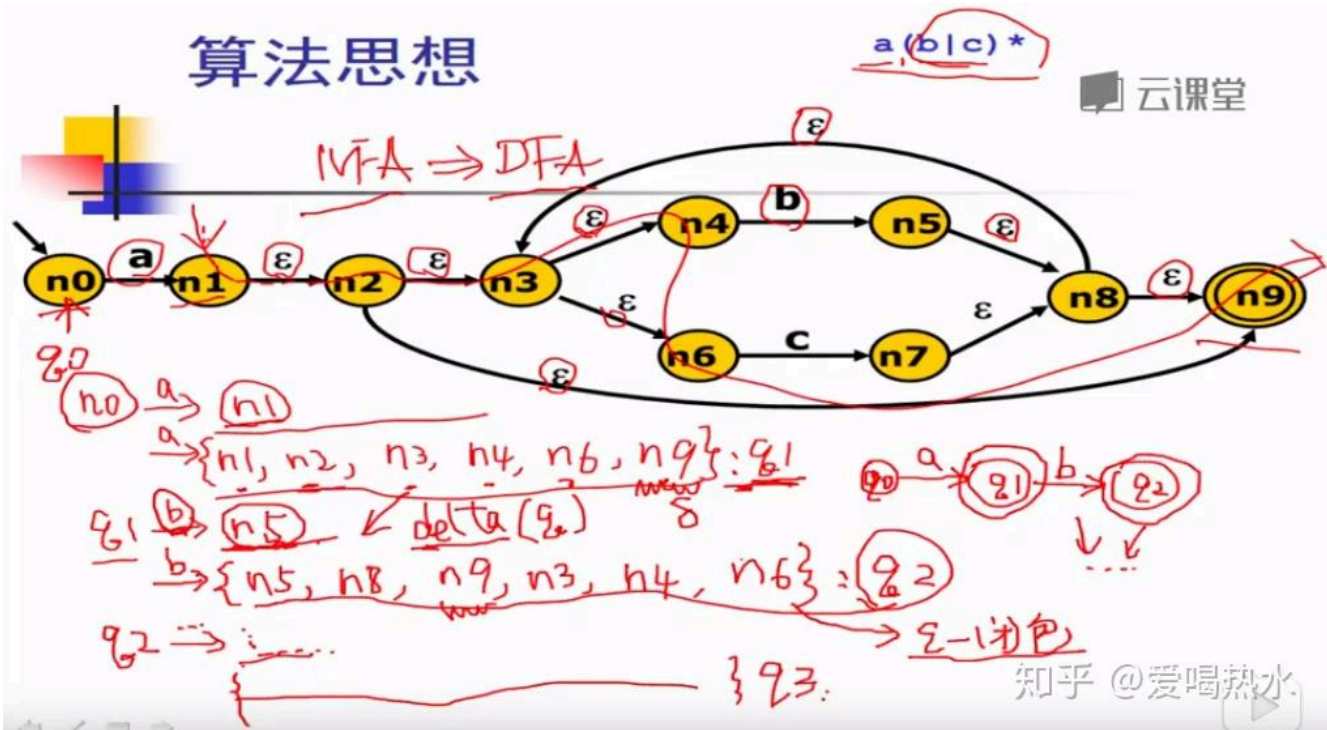 算法思想
a(b|c)*
云课堂
NFA ⇒ DFA
ε
n4 b n5
ε ε
n0 a n1 ε n2 ε n3 n8 ε n9
ε ε
n6 c n7
ε
q0
n0 a→ n1
a→ {n1, n2, n3, n4, n6, n9} : q1
q0 a→ q1 b→ q2
q1 b→ n5 delta(q)
δ
b→ {n5, n8, n9, n3, n4, n6} : q2
.....
q2 ...→ :......
ε-闭包
{ } q3.
知乎 @爱喝热水